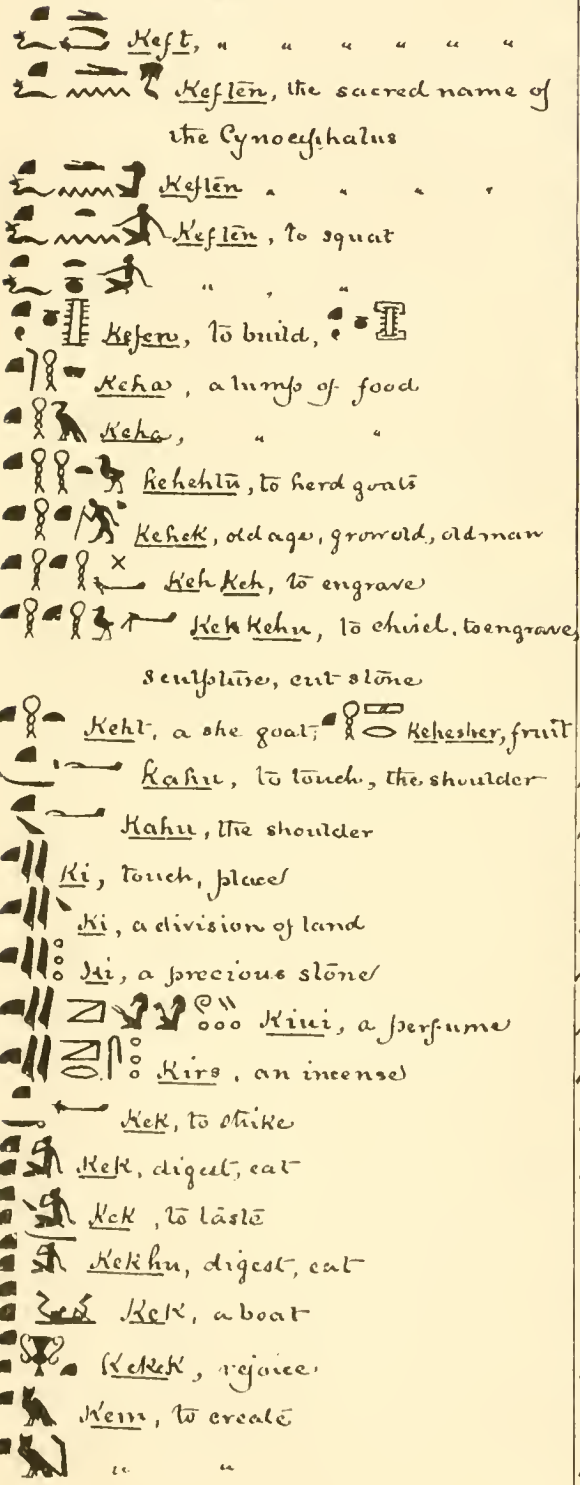 Keft, " " " " " "
Keftēn, the sacred name of
the Cynocephalus
Keftēn " " " "
Keftēn, to squat
" " "
Kefen, to build,
Keha, a lump of food
Keha, " "
Kehehtū, to herd goats
Kehek, old age, grow old, old man
Keh Keh, to engrave
Keh Kehu, to chisel, to engrave,
sculpture, cut stone
Keht, a she goat, Kehesher, fruit
Kahu, to touch, the shoulder
Kahu, the shoulder
Ki, touch, place
Ki, a division of land
Ki, a precious stone
Kiui, a perfume
Kirs, an incense
Kek, to strike
Kek, digest, eat
Kek, to taste
Kekhu, digest, eat
Kek, a boat
Kekek, rejoice
Kem, to create
" "